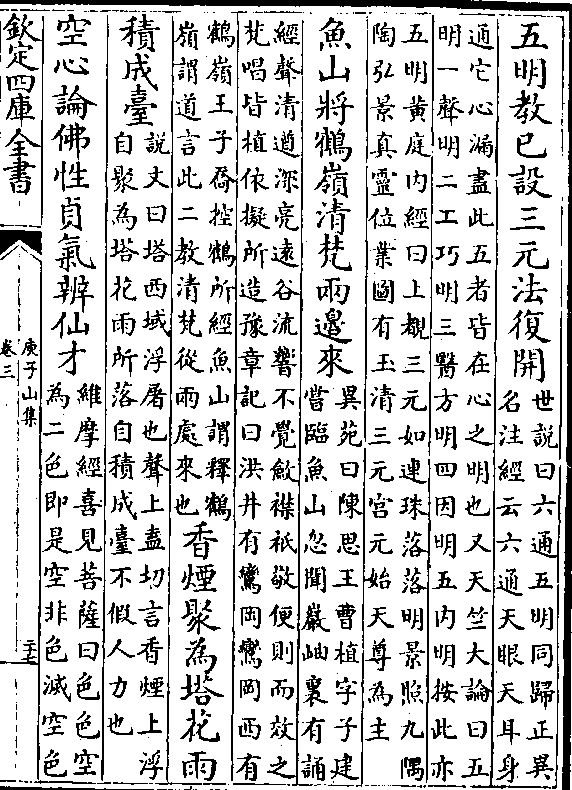 五明教已設三元法復開
世說曰六通五明同歸正異
名注經云六通天眼天耳身
通它心漏盡此五者皆在心之明也又天竺大論曰五
明一聲明二工巧明三醫方明四因明五內明按此亦
五明黃庭內經曰上覩三元如連珠落落明景照九隅
陶弘景真靈位業圖有玉清三元宮元始天尊為主
魚山將鶴嶺清梵兩邊來
異苑曰陳思王曹植字子建
嘗臨魚山忽聞巖岫裏有誦
經聲清遒深亮遠谷流響不覺斂襟祇敬便則而效之
梵唱皆植依擬所造豫章記曰洪井有鸞岡鸞岡西有
鶴嶺王子喬控鶴所經魚山謂釋鶴
嶺謂道言此二教清梵從兩處來也
香煙聚為塔花雨
積成臺
說文曰塔西域浮屠也聲上盍切言香煙上浮
自聚為塔花雨所落自積成臺不假人力也
空心論佛性貞氣辨仙才
維摩經喜見菩薩曰色色空
為二色即是空非色滅空色
欽定四庫全書
庾子山集
卷三
二十七